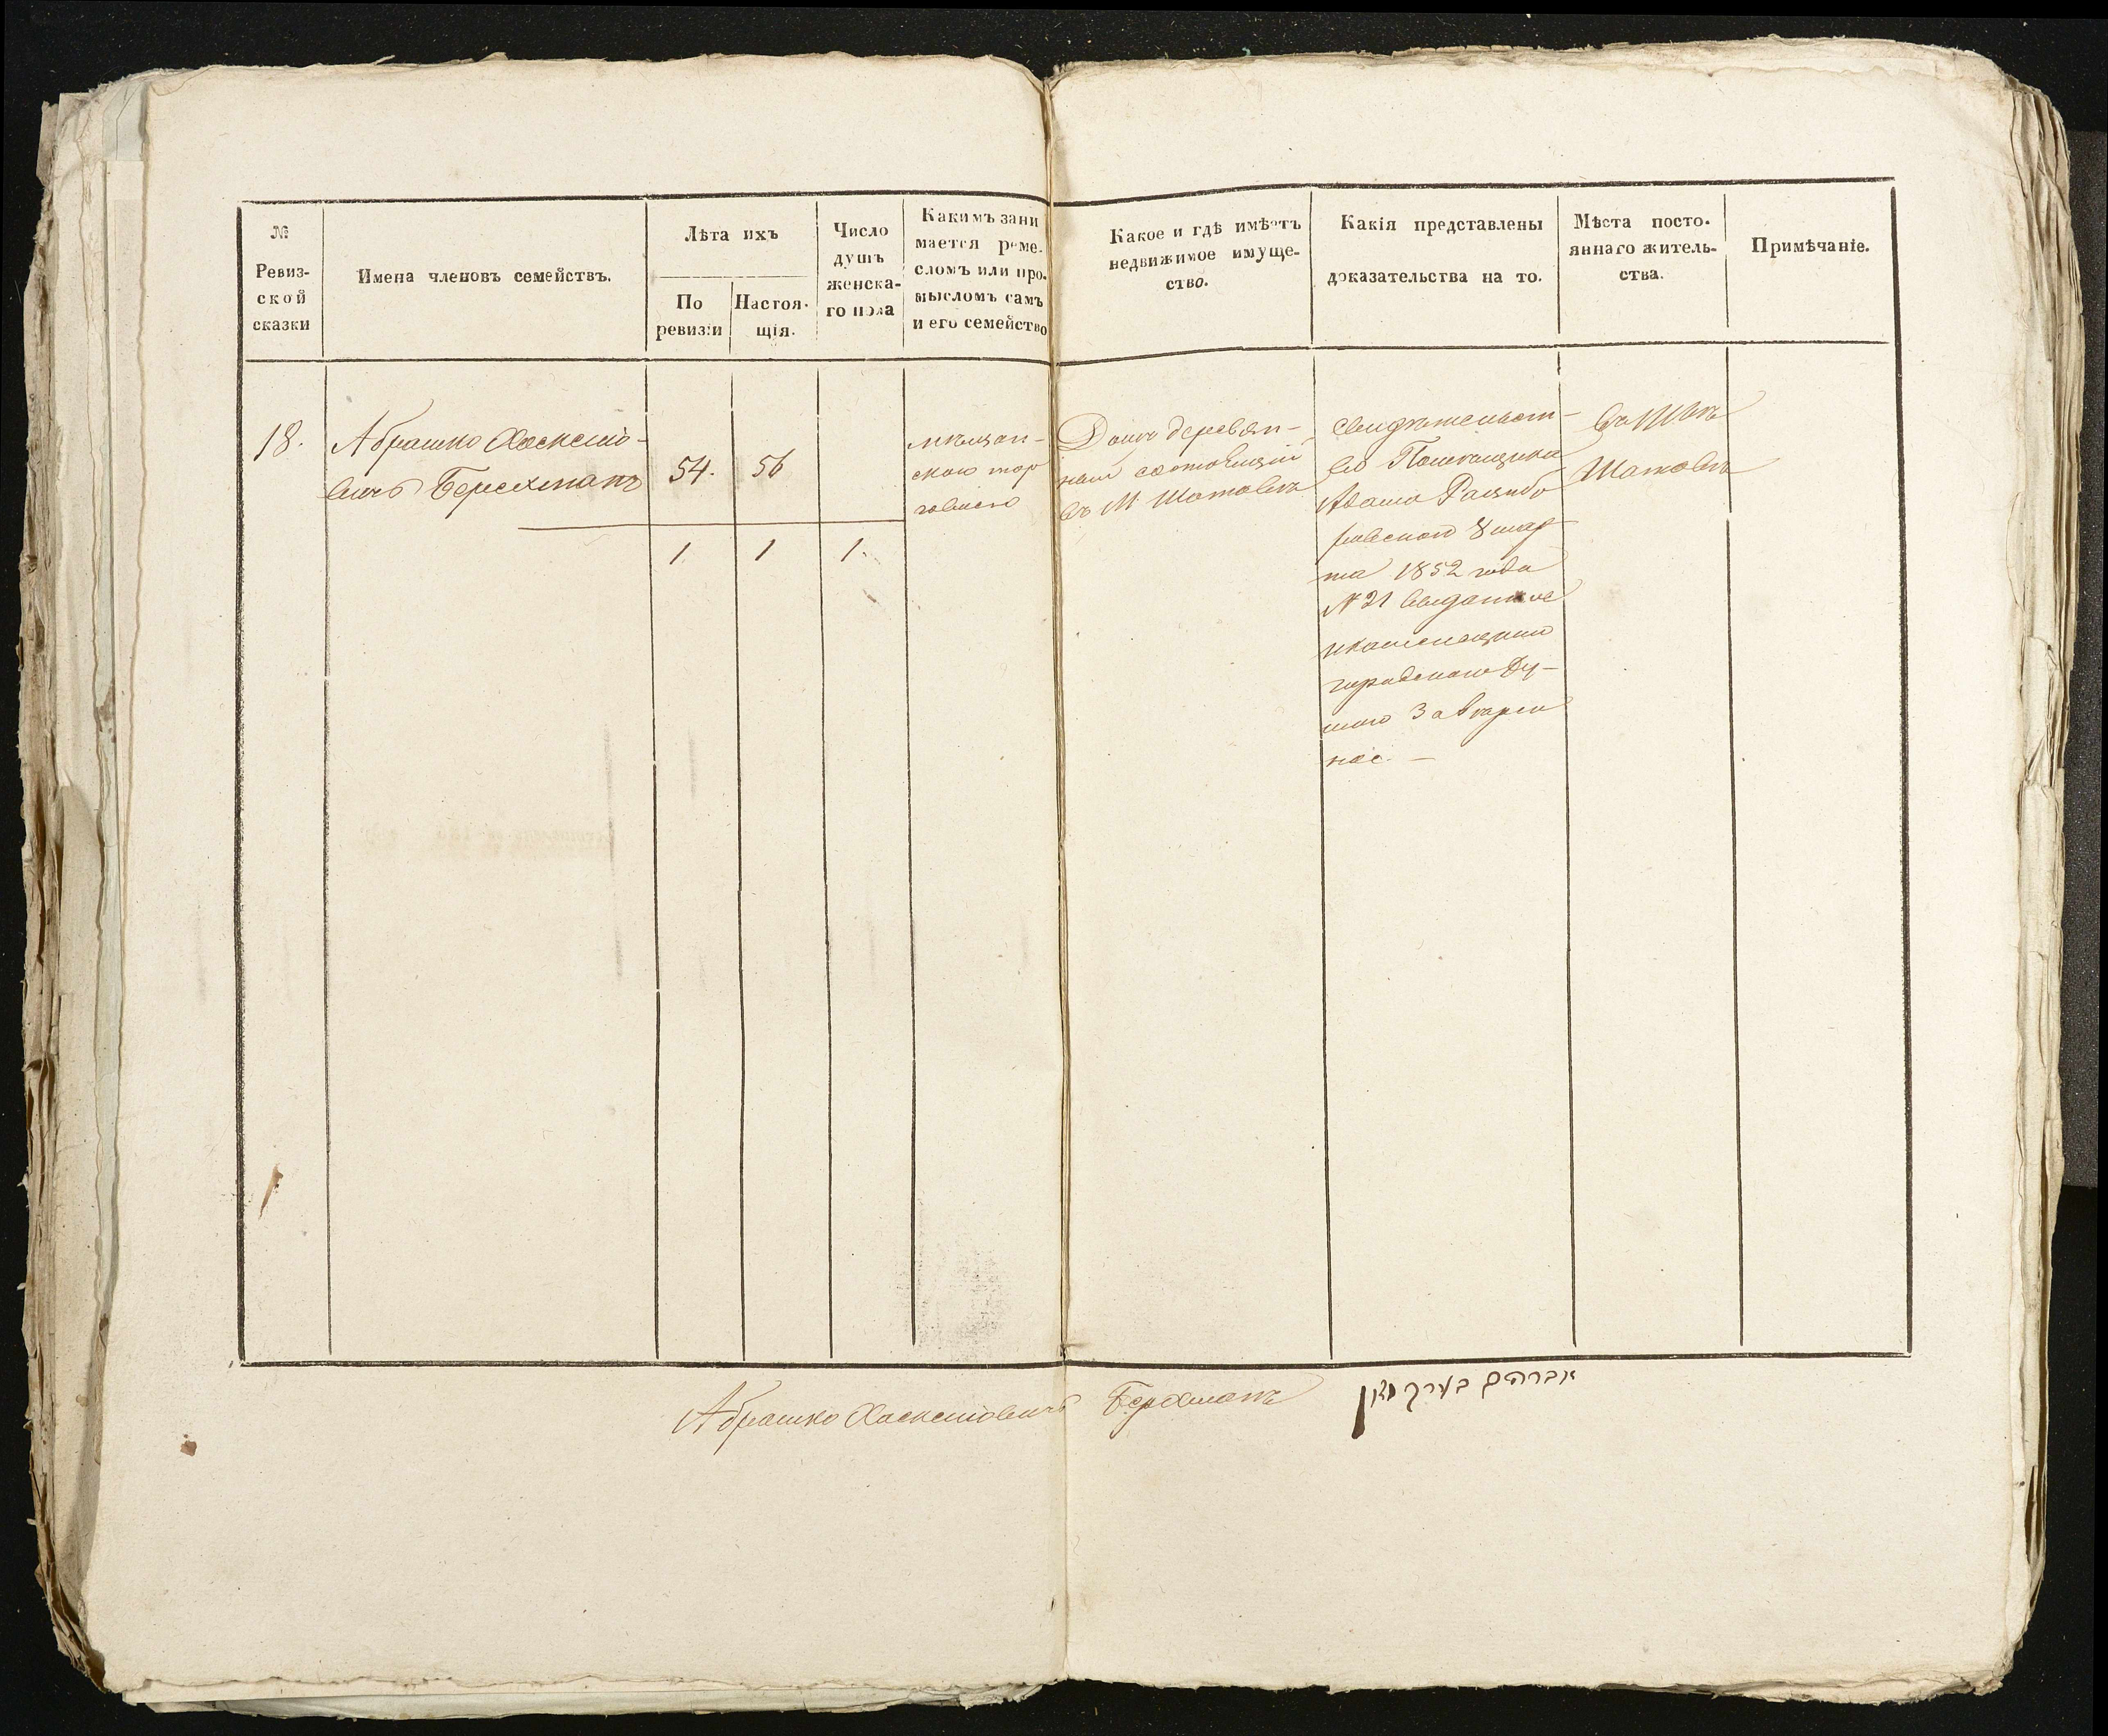 №
Ревиз-
ской
сказки
Имена членовъ семействъ.
Лѣта ихъ
По
ревизіи
Настоя-
щія.
Число
душъ
женска-
го пола
Какимъ зани
мается реме-
сломъ или про-
мысломъ самъ
и его семейство
Какое и гдѣ имѣетъ
недвижимое имуще-
ство.
Какія представлены
доказательства на то.
Мѣста посто-
яннаго житель-
ства.
Примѣчаніе.
18.
Абрашко Хаскеліо-
вичъ
54.
56
1
1
1.
мѣщан-
скою тор
говлею
Домъ деревян-
ный состоящій
въ М Шатавѣ
Свидѣтельст-
во Помѣщика
Адама
8 мар
та 1852 года
№ 21
городскою Ду-
мою 3 апрѣля
Шатавѣ
Абрашко Хаскеліовичъ Берхманъ
אברהם בערקמאן